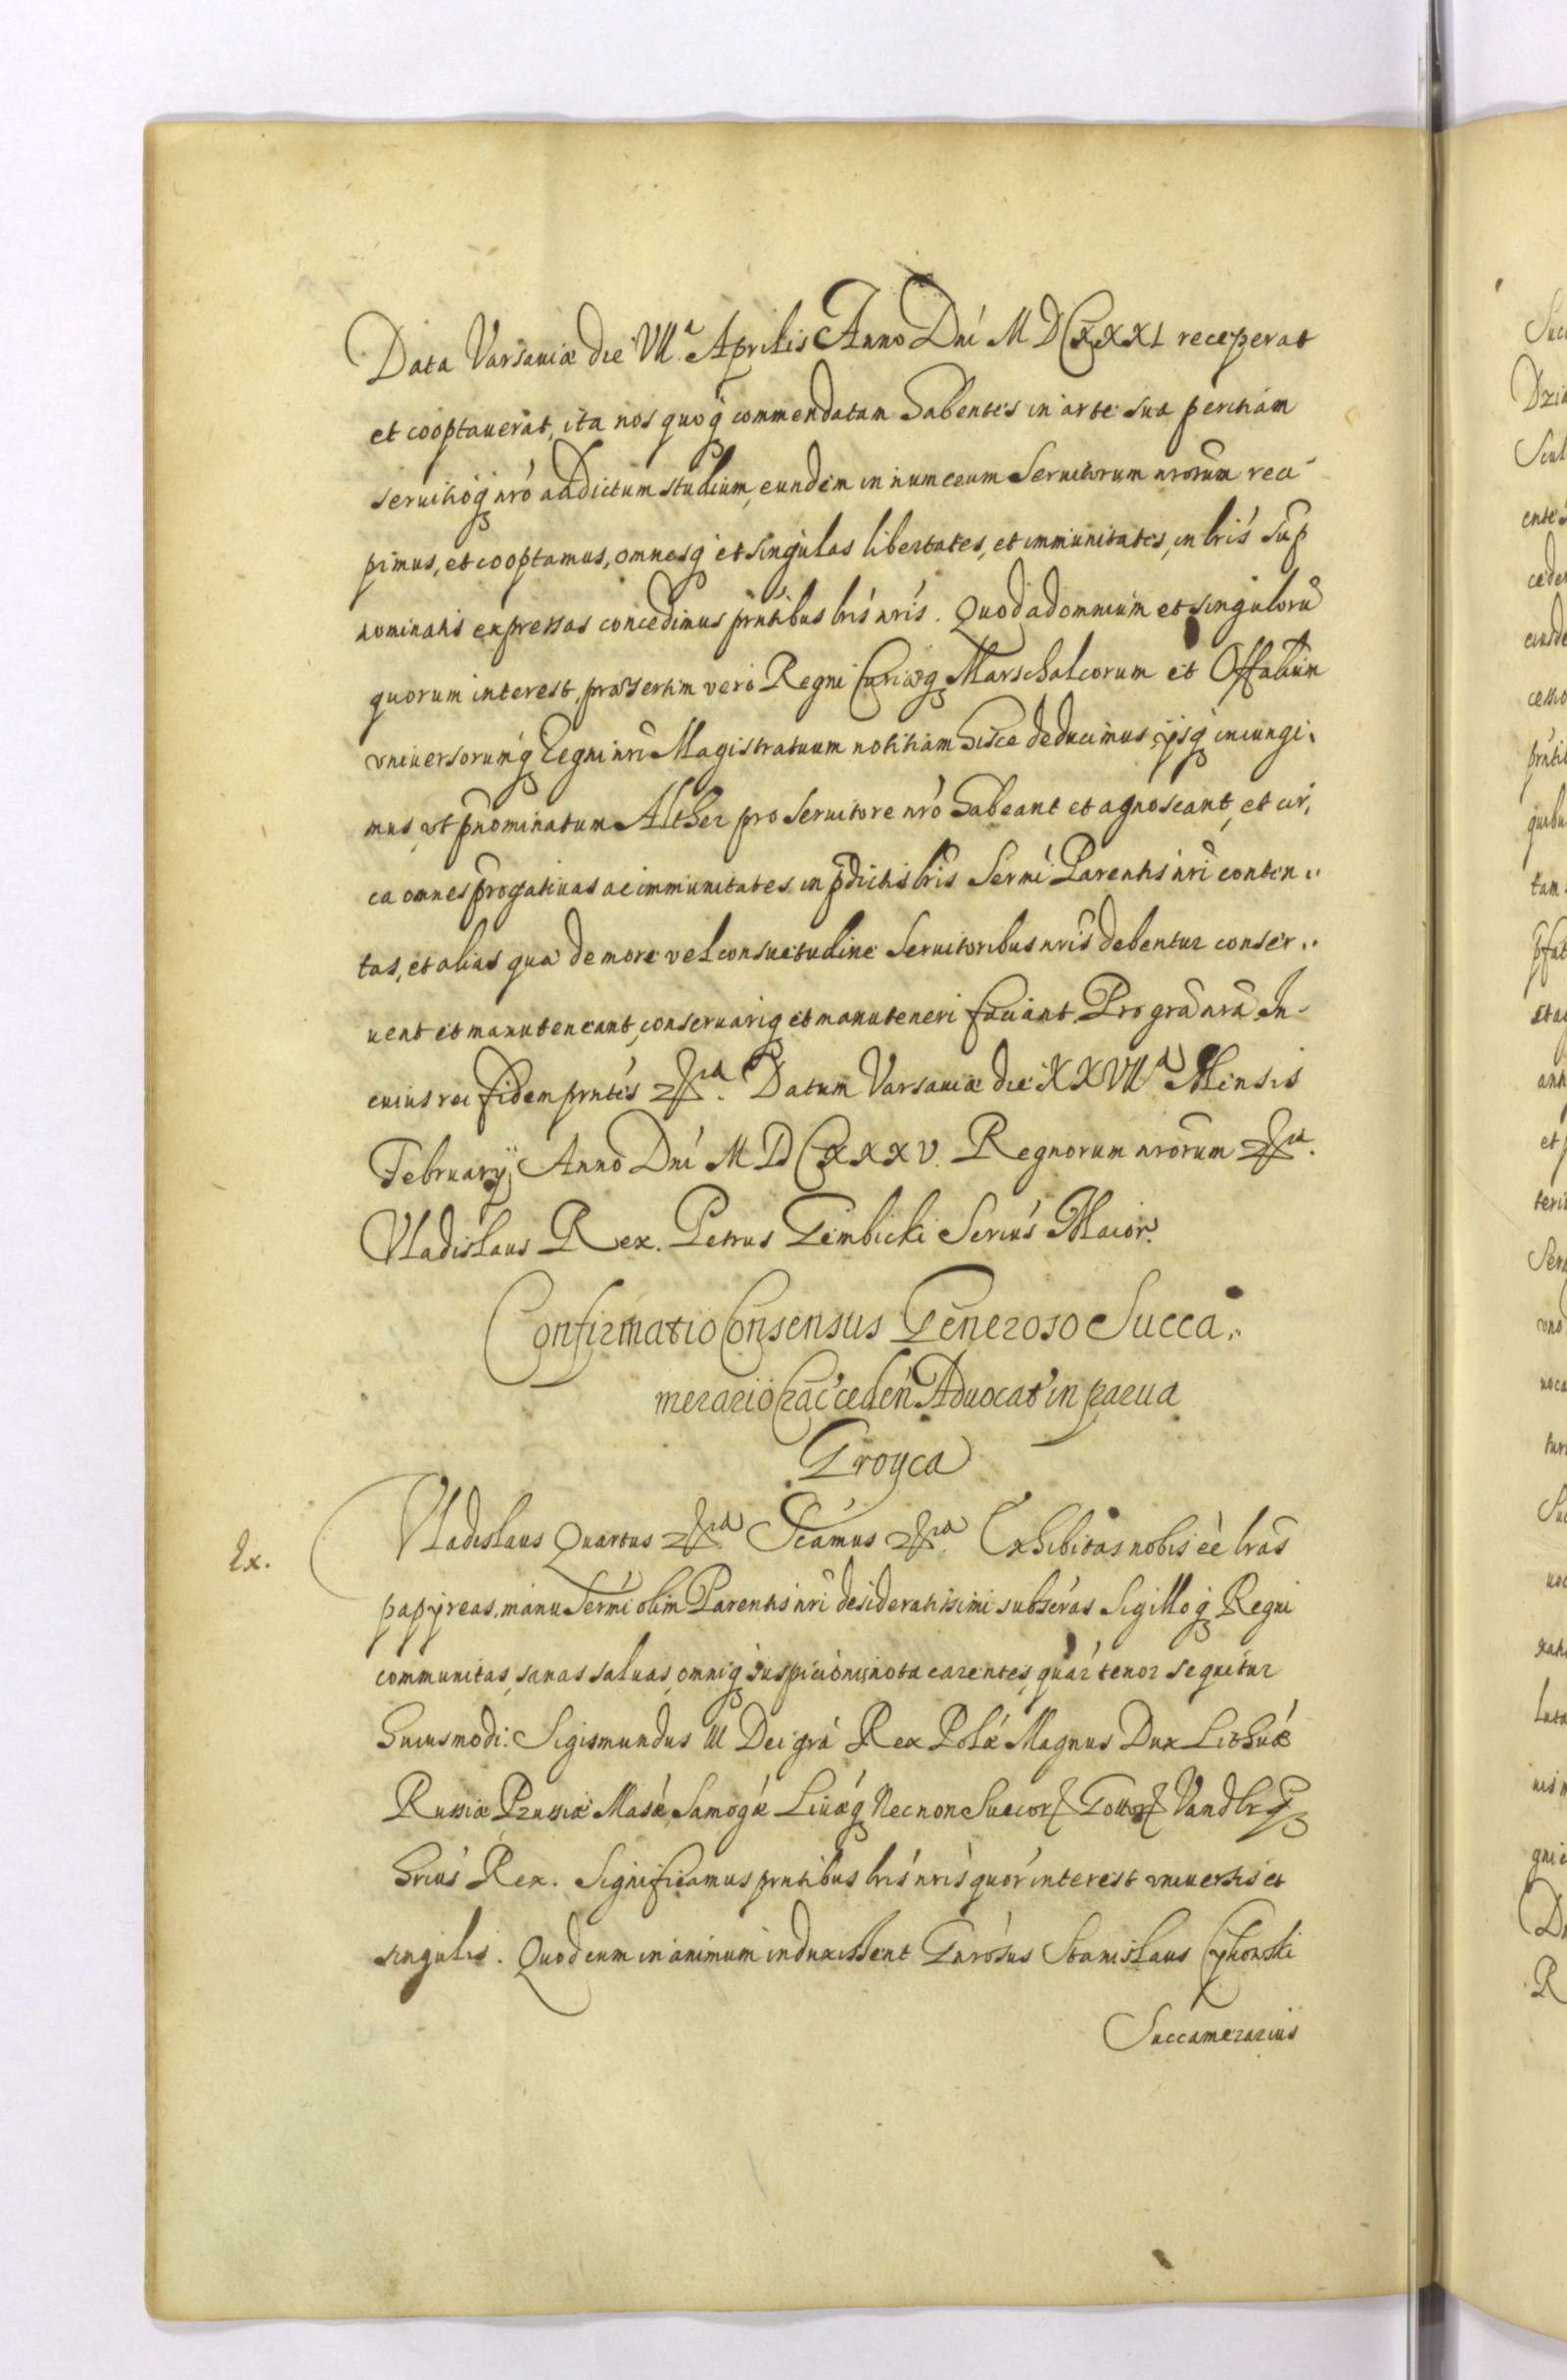 Data Varsauiæ die VII.ª Aprilis Anno Dni M D CXXXI receperat
et cooptauerat, ita nos quoq commendatam habentes in arte sua peritiam
seruitioq nro addictum studium, eundem in numerum Seruitorum nrorum reci-
pimus, et cooptamus, omnesq et singulas libertates, et immunitates, in lris sup
nominatis expressas concedimus pntibus lris nris. Quod ad omnium et singuloru
quorum interest, præsertim vero Regni Curiæq Marschalcorum et Offalium
vniuersorumq Regni nri Magistratuum notitiam hisce deducimus, ijsq iniungi-
mus, vt pnominatum Alther pro Seruitore nro habeant et agnoscant, et cir,
ca omnes progatiuas ac immunitates in pdictis lris Sermi Parentis nri conten,,
tas, et alias quæ de more vel consuetudine Seruitoribus nris debentur conser,,
uent et manuteneant, conseruariq et manuteneri faciant. Pro gra nra In-
cuius rei fidem pntes &ra. Datum Varsauiæ die XXVII.ª Mensis
February Anno Dni M D CXXXV. Regnorum nrorum &ra.
Vladislaus Rex. Petrus Gembicki Serius Maior.
Confirmatio Consensus Generoso Succa,,
merario Crac ceden Aduocat in parua
Troyca
Ex.
Vladislaus Quartus &ra Scamus &ra Exhibitas nobis eè lras
papyreas, manu Sermi olim Parentis nri desideratissimi subscras Sigilloq Regni
communitas, sanas saluas, omniq suspicionis nota carentes, quar tenor sequitur
huiusmodi: Sigismundus III Dei gra Rex Polæ Magnus Dux Lithuæ
Russiæ Prussiæ Masæ Samogæ Liuæq Necnon Suecor Gottor Vandlrq
hrius Rex. Significamus pntibus lris nris quor interest vniuersis et
singulis. Quod cum in animum induxissent Gnrosus Stanislaus Cykowski
Succamerarius